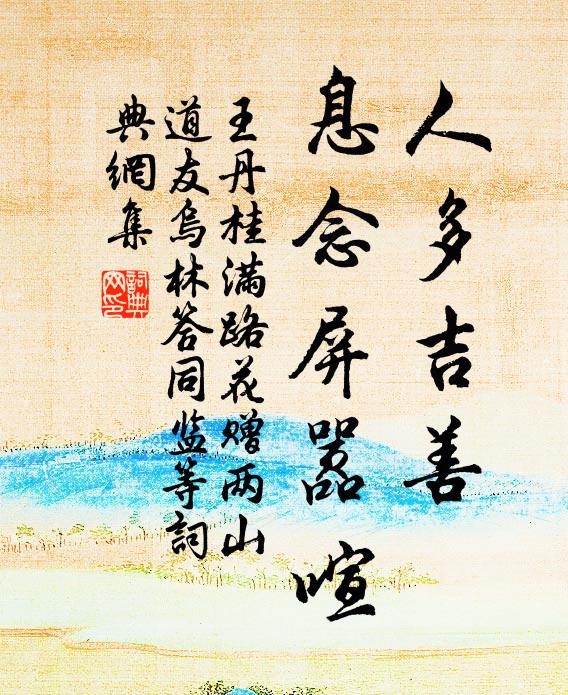 人多吉善
息念屏嚣喧
王丹桂满路花赠两山
道友乌林答同监等詞
典網集
詞典網印